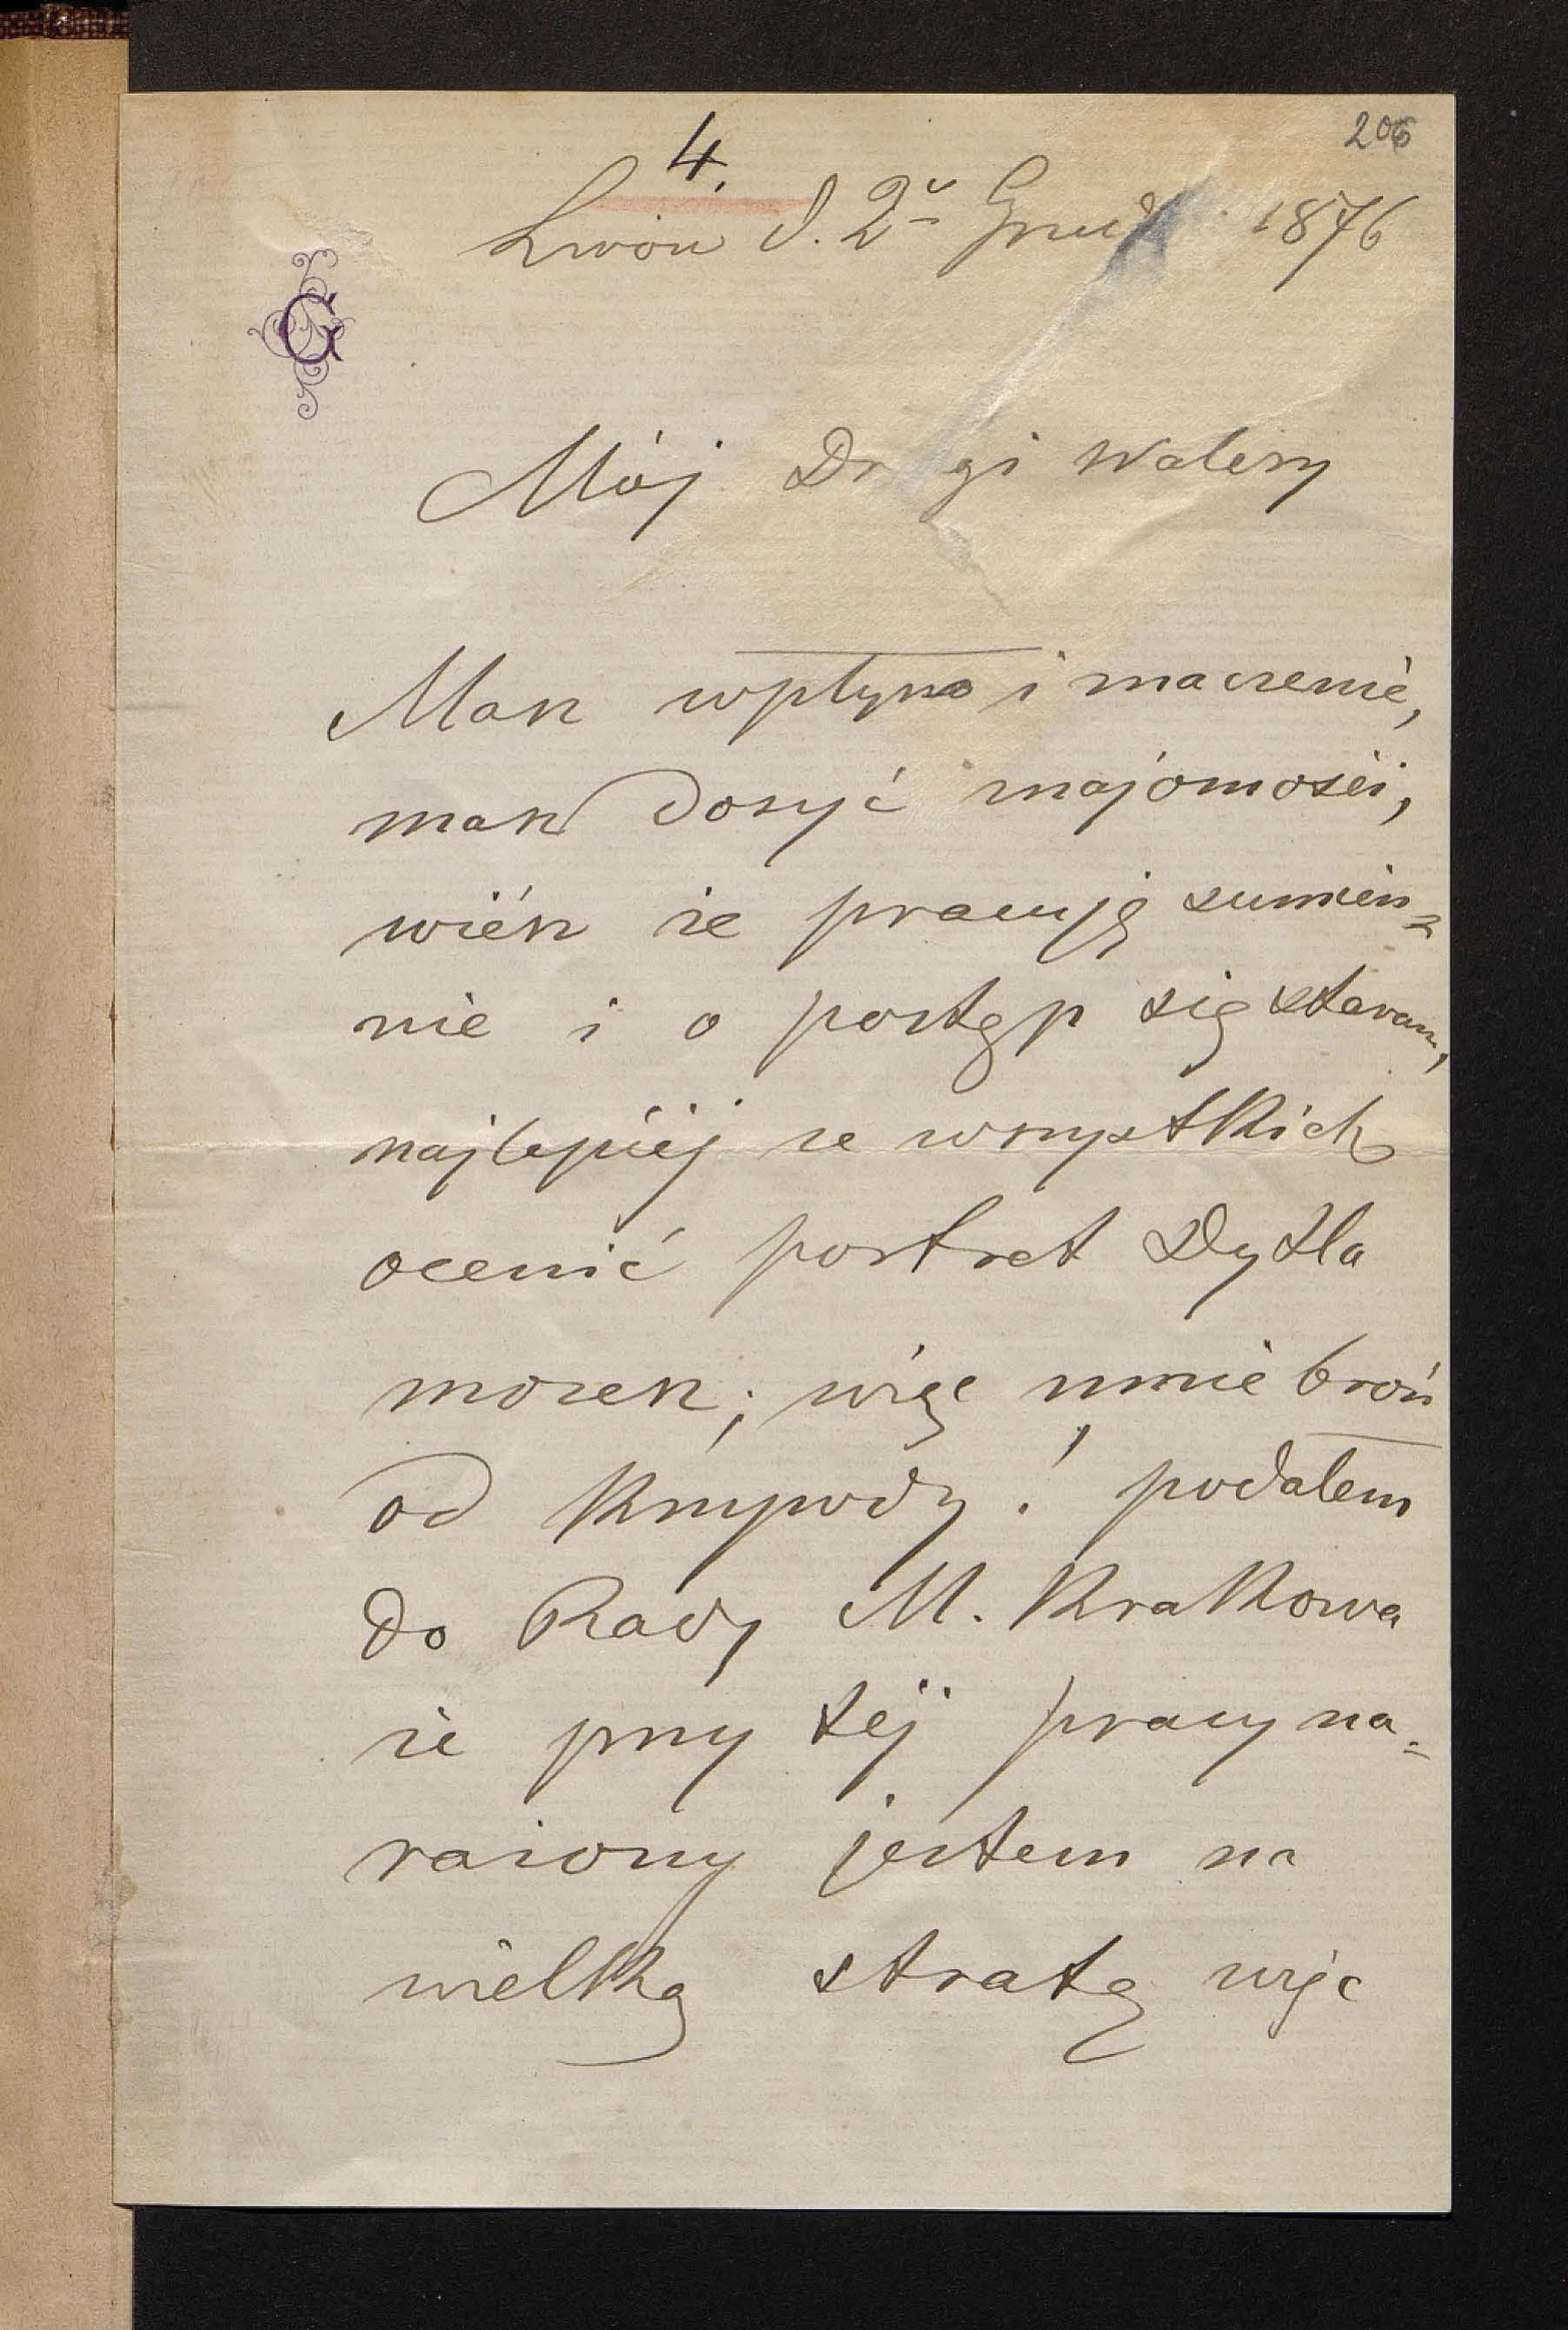 206
4.
Lwów d. 2º Grud 1876
G
Mój Dr gi Walery
Masz wpływ i znaczenie,
masz dosyć znajomości,
wiész że pracuję sumien=
nie i o postęp się staram,
najlepiéj ze wszystkich
ocenić portret Dytla
możesz; więc mnie broń
od krzywdy! podałem
do Rady M. Krakowa
że przy téj pracy na=
rażony jestem na
wielką stratę więc